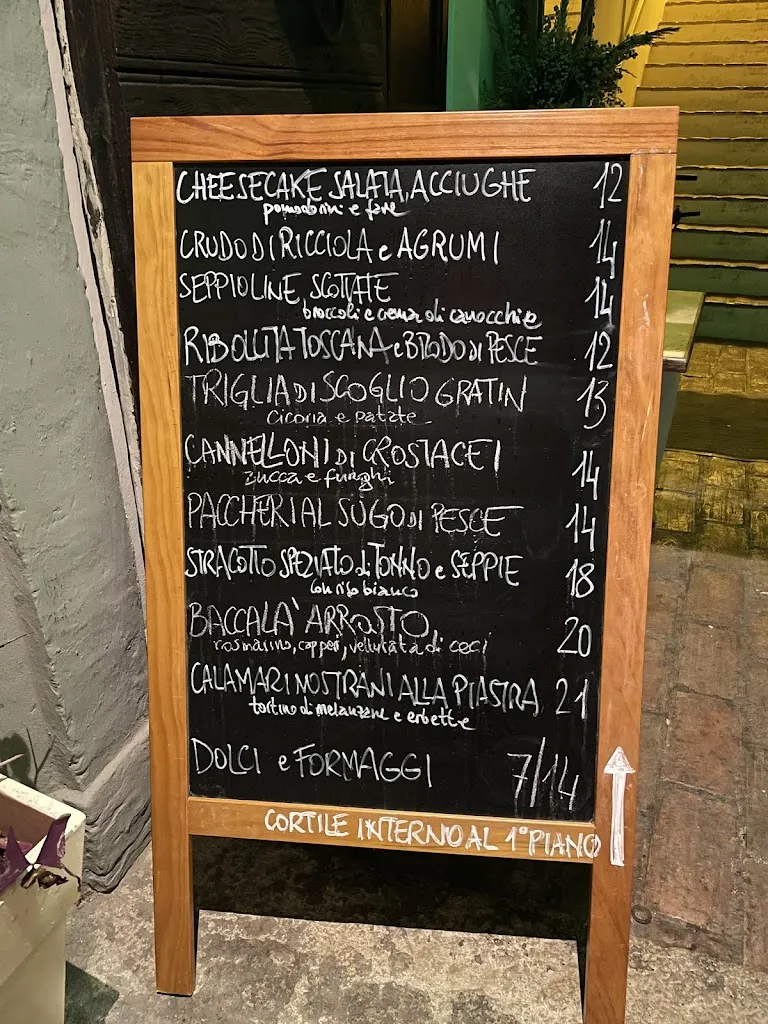 CHEESECAKE SALATA, ACCIUGHE 12
pomodorini e fave
CRUDO DI RICCIOLA e AGRUMI 14
SEPPIOLINE SCOTTATE 14
broccoli e crema di canocchie
RIBOLLITA TOSCANA e BRODO DI PESCE 12
TRIGLIA DI SCOGLIO GRATIN 13
cicoria e patate
CANNELLONI DI CROSTACEI 14
zucca e funghi
PACCHERI AL SUGO DI PESCE 14
STRACOTTO SPEZIATO di TONNO e SEPPIE 18
con riso bianco
BACCALA' ARROSTO 20
rosmarino, capperi, vellutata di ceci
CALAMARI NOSTRANI ALLA PIASTRA 21
tortino di melanzane e erbette
DOLCI e FORMAGGI 7/14
CORTILE INTERNO AL 1° PIANO